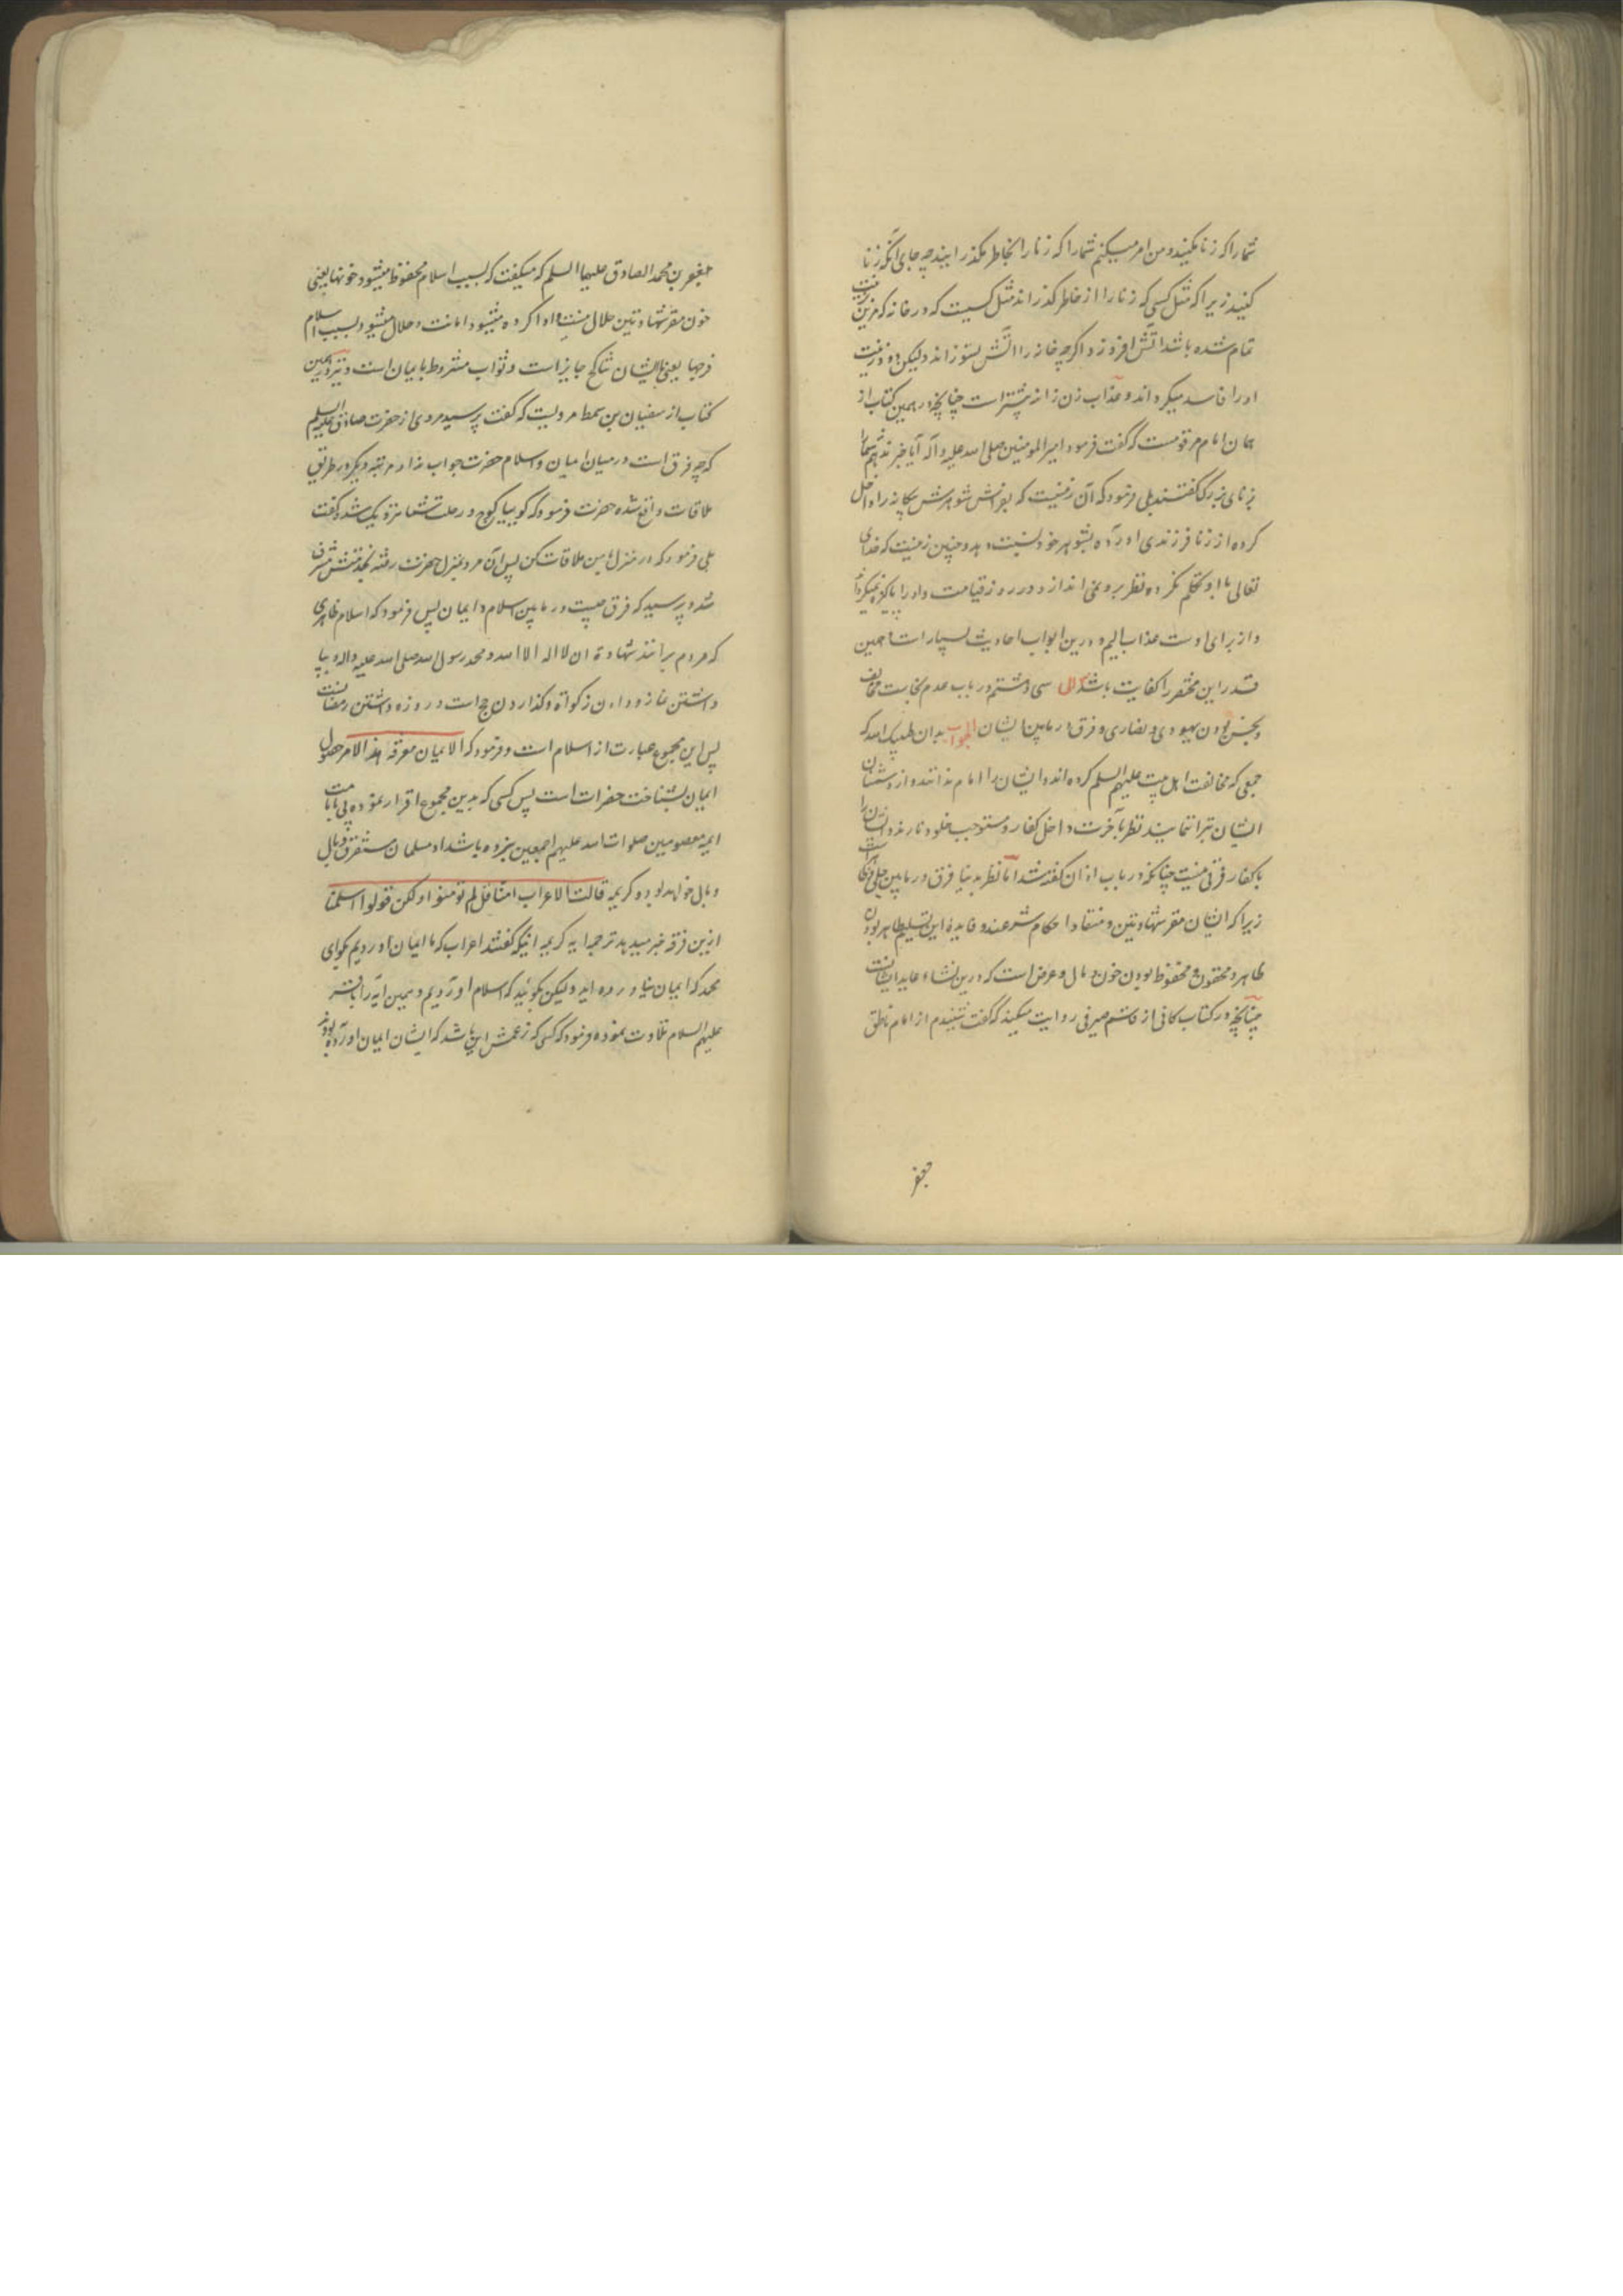 شما را که زنا مکنید و من امر میکنم شما را که زنا را بخاطر مگذرانید چه جای آنکه زنا
کنید زیرا که مثل کسی که زنا را از خاطر گذراند مثل کسیست که در خانه که مزین
تمام شده باشد اتش افروزد اگرچه خانه را اتش نسوزاند ولیکن دود زینت
او را فاسد میگرداند و عذاب زن زانیه بیشتر است چنانچه در همین کتاب از
همان امام مرقومست که گفت فرمود امیرالمومنین صلی الله علیه و آله آیا خبر ندهم شما را
بزنای بزرگ گفتند بلی فرمود که آن زنیست که بفراش شوهرش بیگانه را داخل
کرده از زنا فرزندی اورده بشوهر خود نسبت دهد و چنین زنیست که خدای
تعالی با او تکلم نکرده نظر برو نمی اندازد در روز قیامت و او را پاکیزه نمیگرداند
و از برای اوست عذاب الیم و درین ابواب احادیث بسیار است همین
قدر این مختصر را کفایت باشد سوال سی و هشتم در باب عدم نجاست مخالف
و نجس بودن یهودی و نصاری و فرق در مابین ایشان الجواب بدان طیبک الله که
جمعی که مخالفت اهل بیت علیهم السلم کرده اند و ایشان را امام ندانند و از دشمنان
ایشان تبرا ننمایند نظر بآخرت داخل کفار و مستوجب خلود نارند و ایشان را
با کفار فرقی نیست چنانکه در باب اذان گفته شد اما نظر بدنیا فرق در مابین جلی و قوی است
زیرا که ایشان مقر شهادتین و منقاد احکام شرعند و فایده این تسلیم طاهر بودن
ظاهر و محقون و محفوظ بودن خون و مال و عرض است که درین نشاء عاید ایشانست
چنانچه در کتاب کافی از قاسم صیرفی روایت میکند که گفت شنیدم از امام ناطق
جعفر
جعفر بن محمد الصادق علیهما السلم که میگفت که بسبب اسلام محفوظ میشود خونها یعنی
خون مقر شهادتین حلال نیست و ادا کرده میشود امانت و حلال میشود بسبب اسلام
فرجها یعنی با ایشان نکاح جایز است و ثواب مشروط بایمان است و نیز در همین
کتاب از سفیان بن سمط مرویست که گفت پرسید مردی از حضرت صادق علیه السلم
که چه فرق است در میان ایمان و اسلام حضرت جواب نداد مرتبه دیگر در طریق
ملاقات واقع شده حضرت فرمود که گوییا کوچ و رحلت شما نزدیک شد گفت
بلی فرمود که در منزل با من ملاقات کن پس آن مرد بمنزل حضرت رفته بخدمتش مشرف
شد و پرسید که فرق چیست در مابین اسلام و ایمان پس فرمود که اسلام ظاهری
که مردم برانند شهادة ان لا اله الا الله و محمد رسول الله صلی الله علیه واله و بپا
داشتن نماز و دادن زکوة و گذاردن حج است و روزه داشتن رمضانست
پس این مجموع عبارت از اسلام است و فرمود که الایمان معرفة هذا الامر حصول
ایمان بشناخت حضرات است پس کسی که بدین مجموع اقرار نموده پی بامامت
ایمه معصومین صلوات الله علیهم اجمعین نبرده باشد او مسلمان مستغرق وبال
و بال خواهد بود و کریمه قالت الاعراب امنا قل لم تومنوا ولکن قولوا اسلمنا
ازین فرق خبر میدهد ترجمه ایه کریمه اینکه گفتند اعراب که ما ایمان اوردیم بگو ای
محمد که ایمان نیاورده اید ولیکن بگوئید که اسلام اوردیم و همین آیه را باقر
علیهم السلام تلاوت نموده فرمود که کسی که زعمش این باشد که ایشان ایمان اورده بودند